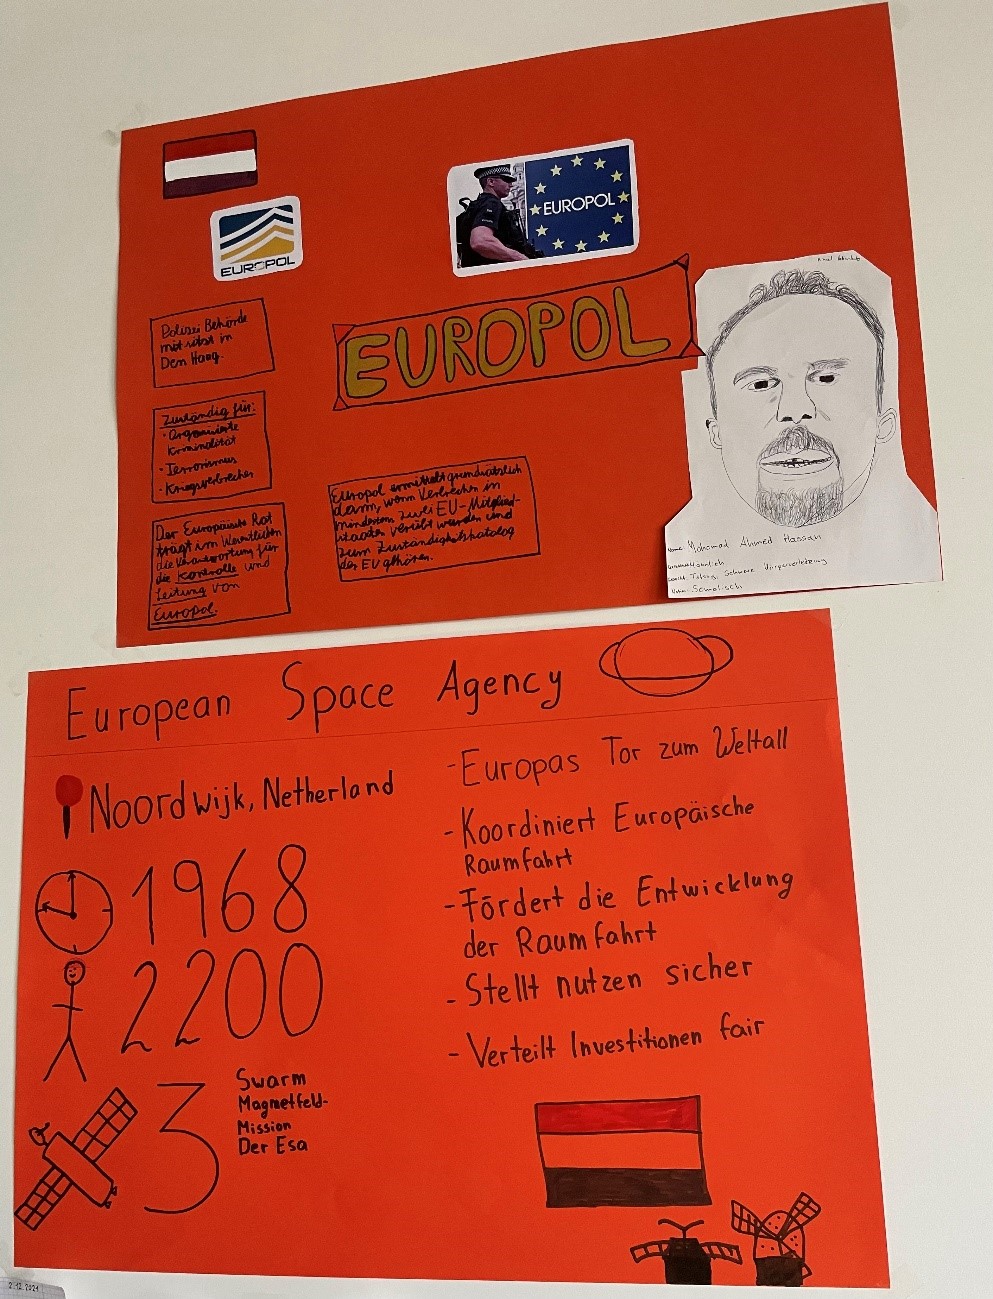 EUROPOL
EUROPOL
EUROPOL
Polizei Behörde
mit sitz in
Den Haag.
Zuständig für:
· Organisierte
Kriminalität
· Terrorismus
· Kriegsverbrecher
Der Europäische Rat
trägt im Wesentlichen
die Verantwortung für
die Kontrolle und
Leitung von
Europol.
Europol ermittelt grundsätzlich
dann, wenn Verbrechen in
mindestens zwei EU-Mitglied-
staaten verübt wurden und
zum Zuständigkeitskatalog
der EU gehören.
Name: Mohamad Ahmed Hassan
männlich
Totschlag, Schwere Körperverletzung
Somalisch
European Space Agency
Noordwijk, Netherland
1968
2200
3
Swarm
Magnetfeld-
Mission
Der Esa
- Europas Tor zum Weltall
- Koordiniert Europäische
Raumfahrt
- Fördert die Entwicklung
der Raumfahrt
- Stellt nutzen sicher
- Verteilt Investitionen fair